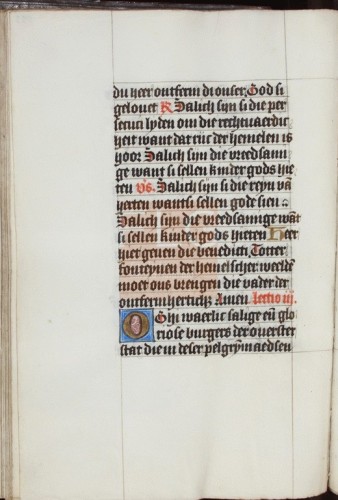 du heer ontferm di onser. God si
gelouet R Salich sijn si die per
secuci lyden om die rechtuaerdic
heit want dat rijc der hemelen is
hoor Salich sijn die vreedsam
ge want si sellen kinder gods hie
ten vs. Salich sijn si die reyn vā
herten want si sellen gode sien
Salich sijn die vreedsamige wāt
si sellen kinder gods hieten Heer
hier geuen die benedich. Totter
fonteynen der hemelscher weelde
moet ons brengen die vader der
ontfermherticheit Amen. Lectio iij.
O Ghi waerlic salige eñ glo
riose burgers der ouerster
stat die in deser pelgrymaedsen